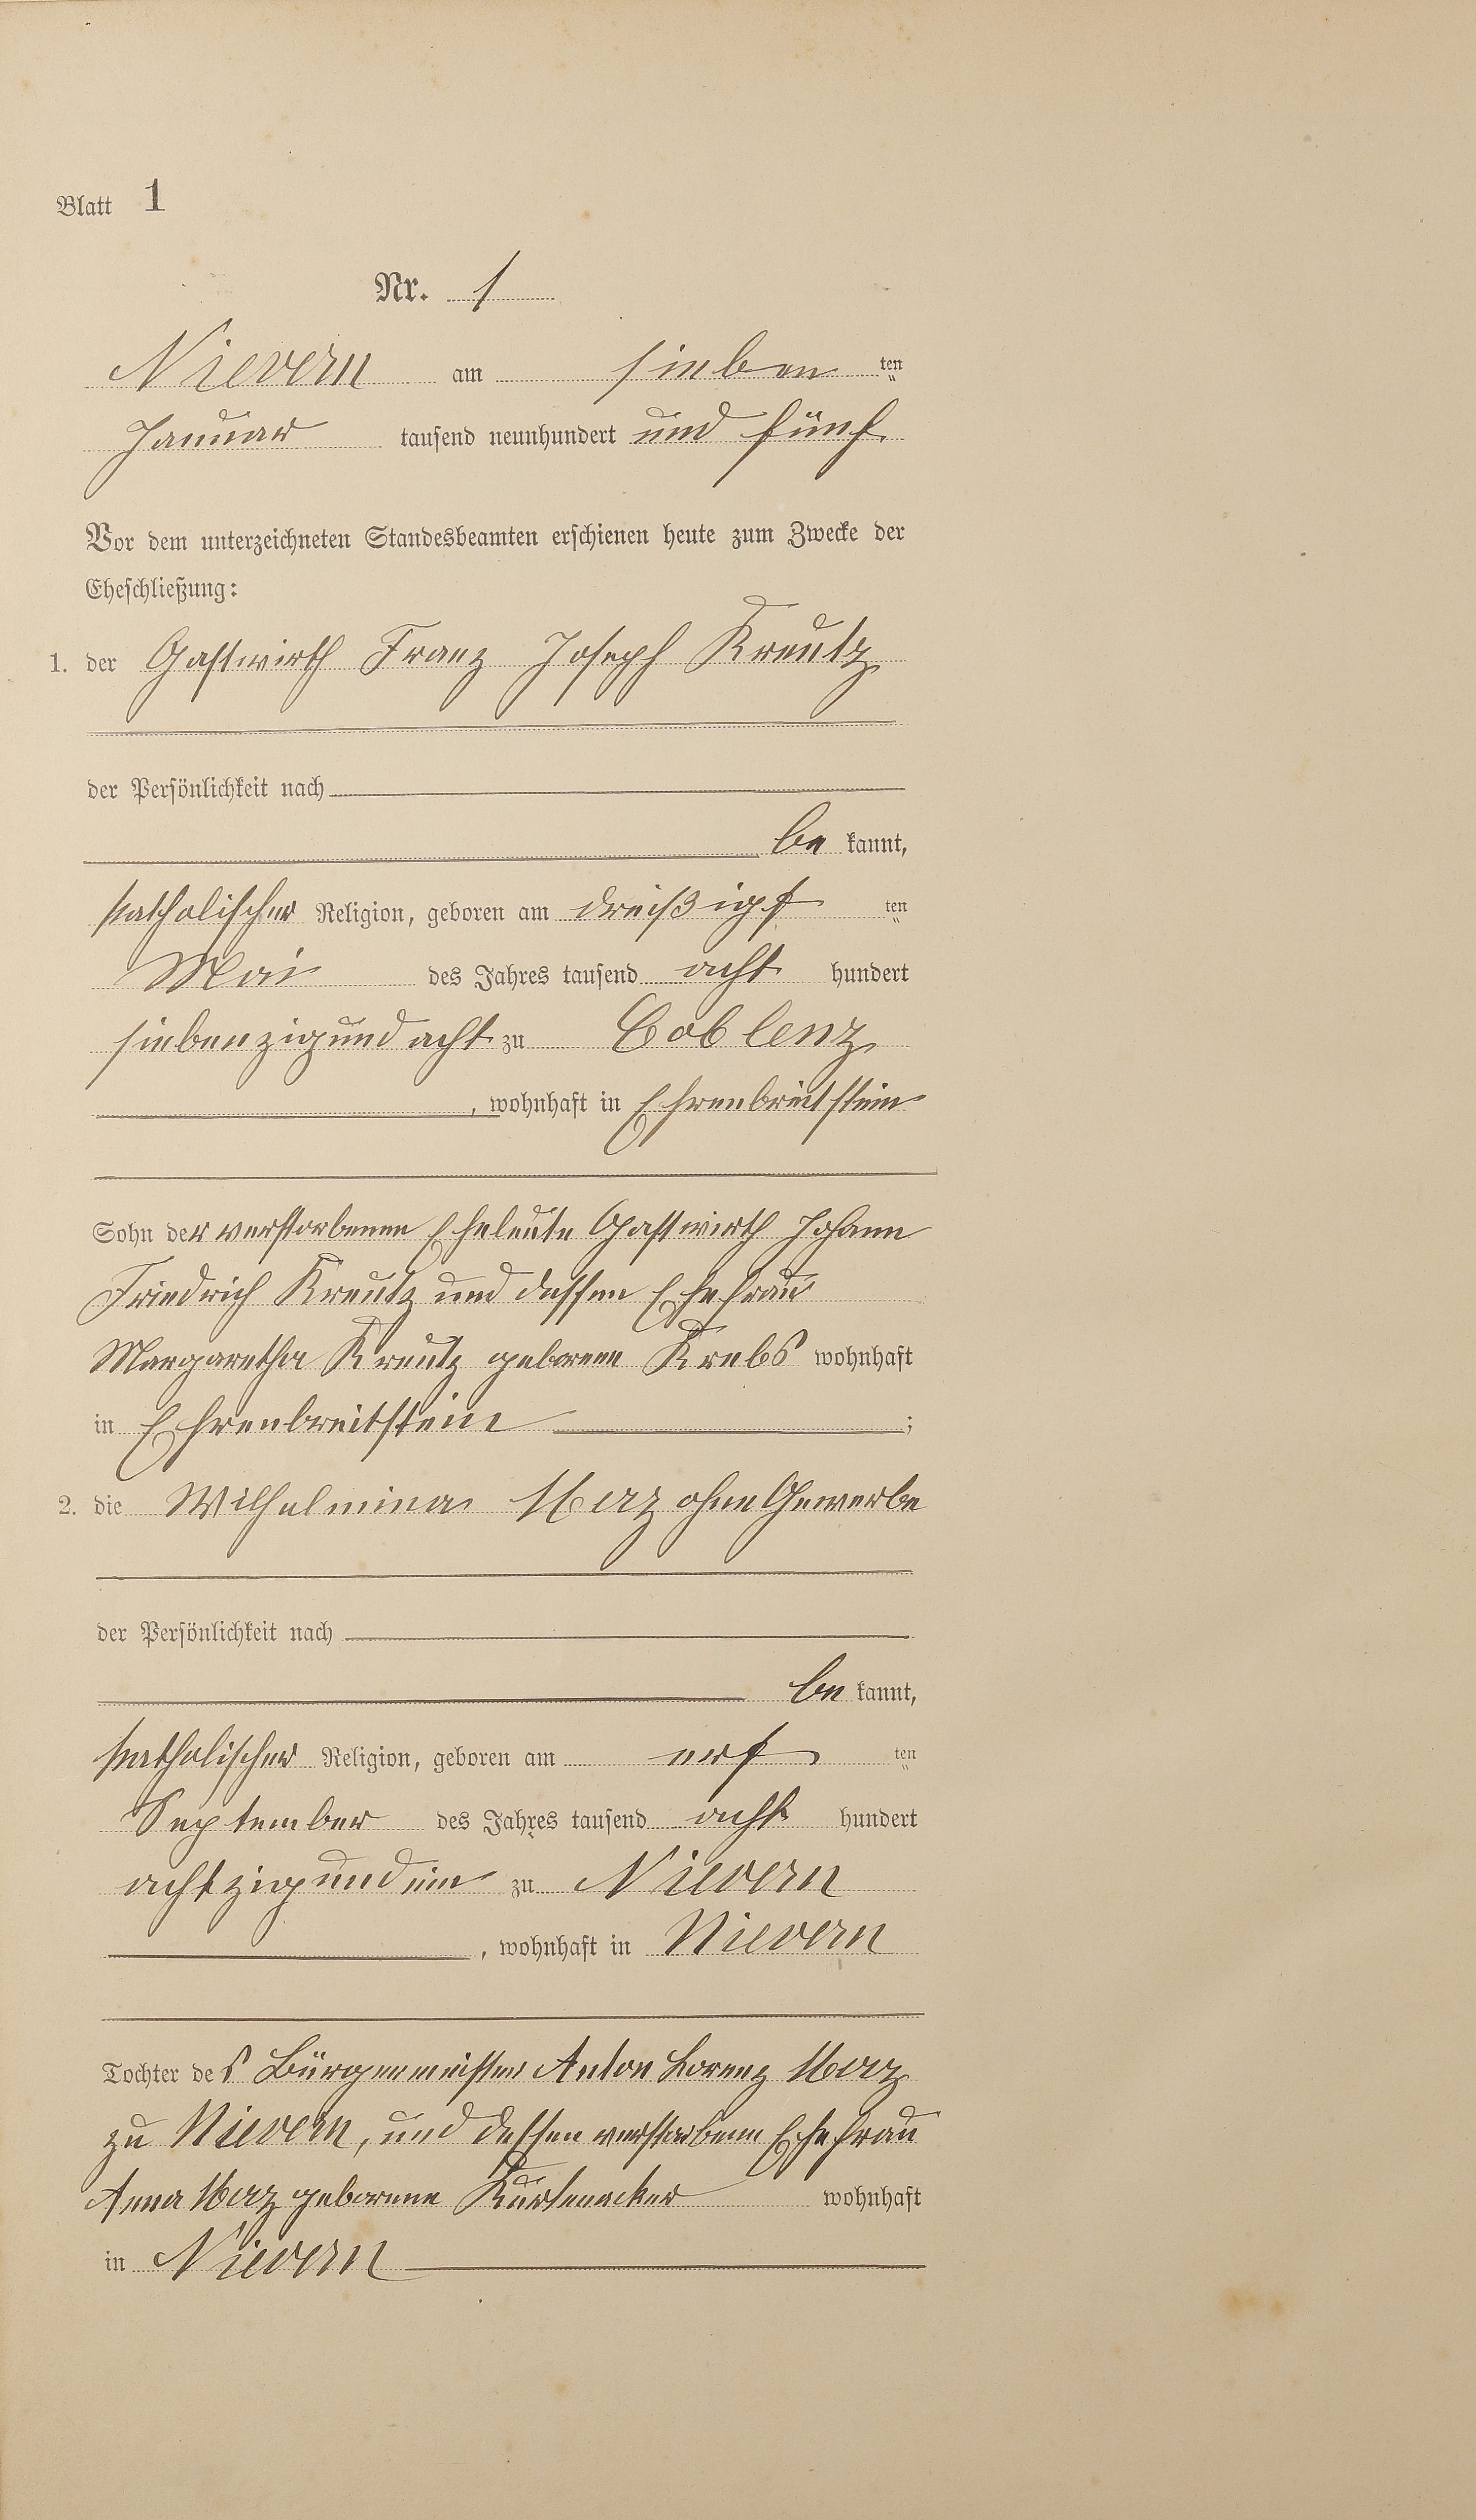 Blatt 1
Nr. 1
Nievern am sieben ten
Januar tausend neunhundert und fünf.
Vor dem unterzeichneten Standesbeamten erschienen heute zum Zwecke der
Eheschließung:
1. der Gastwirth Franz Joseph Kreutz
der Persönlichkeit nach
be kannt,
katholischer Religion, geboren am dreißigs ten
Mai des Jahres tausend acht hundert
siebenzigundacht zu Coblenz
, wohnhaft in Ehrenbreitstein
Sohn der verstorbenen Eheleute Gastwirth Johann
Friedrich Kreutz und dessen Ehefrau
Margaretha Kreutz geborene Krebs wohnhaft
in Ehrenbreitstein ;
2. die Wilhelmina ohne Gewerbe
der Persönlichkeit nach
be kannt,
katholischer Religion, geboren am ers ten
September des Jahres tausend acht hundert
achtzigundein zu Nievern
, wohnhaft in Nievern
Tochter des Bürgermeister Anton Lorenz
zu Nievern, und dessen verstorbene Ehefrau
Anna geborene wohnhaft
in Nievern